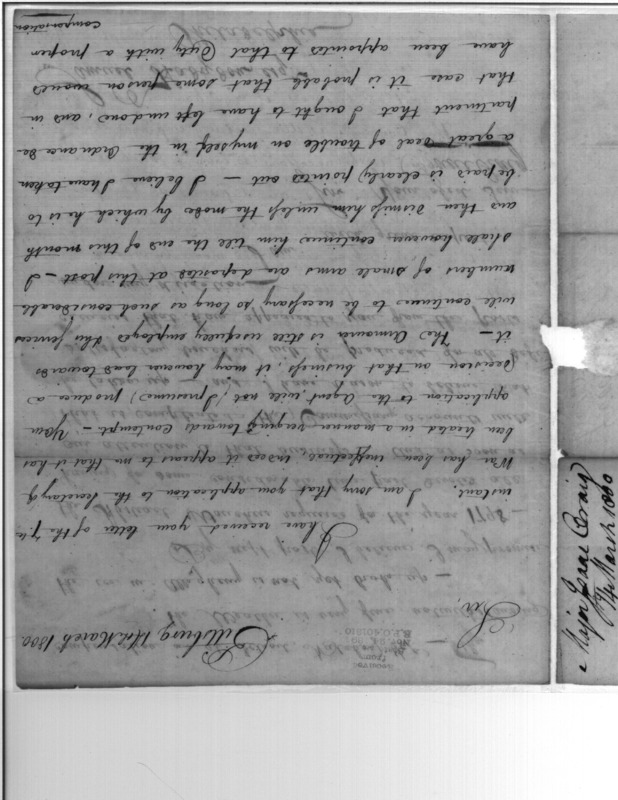 Pittsburg 14th March 1800
Sir,
I have received your letter of the 7th
instant. I am sorry that your application to the Secretary of
War has been ineffectual, indeed it appears to me that it has
been treated in a manner verging towards Contempt. — Your
application to the Agent, will not, (I presume) produce a
decision on that business, it may however lead towards
it — The Armourer is still usefully employed his services
will continue to be necessary so long as such considerable
numbers of small arms are deposited at this post — I
shall however continue him till the end of this month
and then dismiss him unless the mode by which he is to
be paid is clearly pointed out — I believe I have taken
a great deal of trouble on myself in the Ordnance de
partment that I ought to have left undone, and in
that case it is probable that some person would
have been appointed to that Duty with a proper
compensation
Major Isaac Craig
14 March 1800